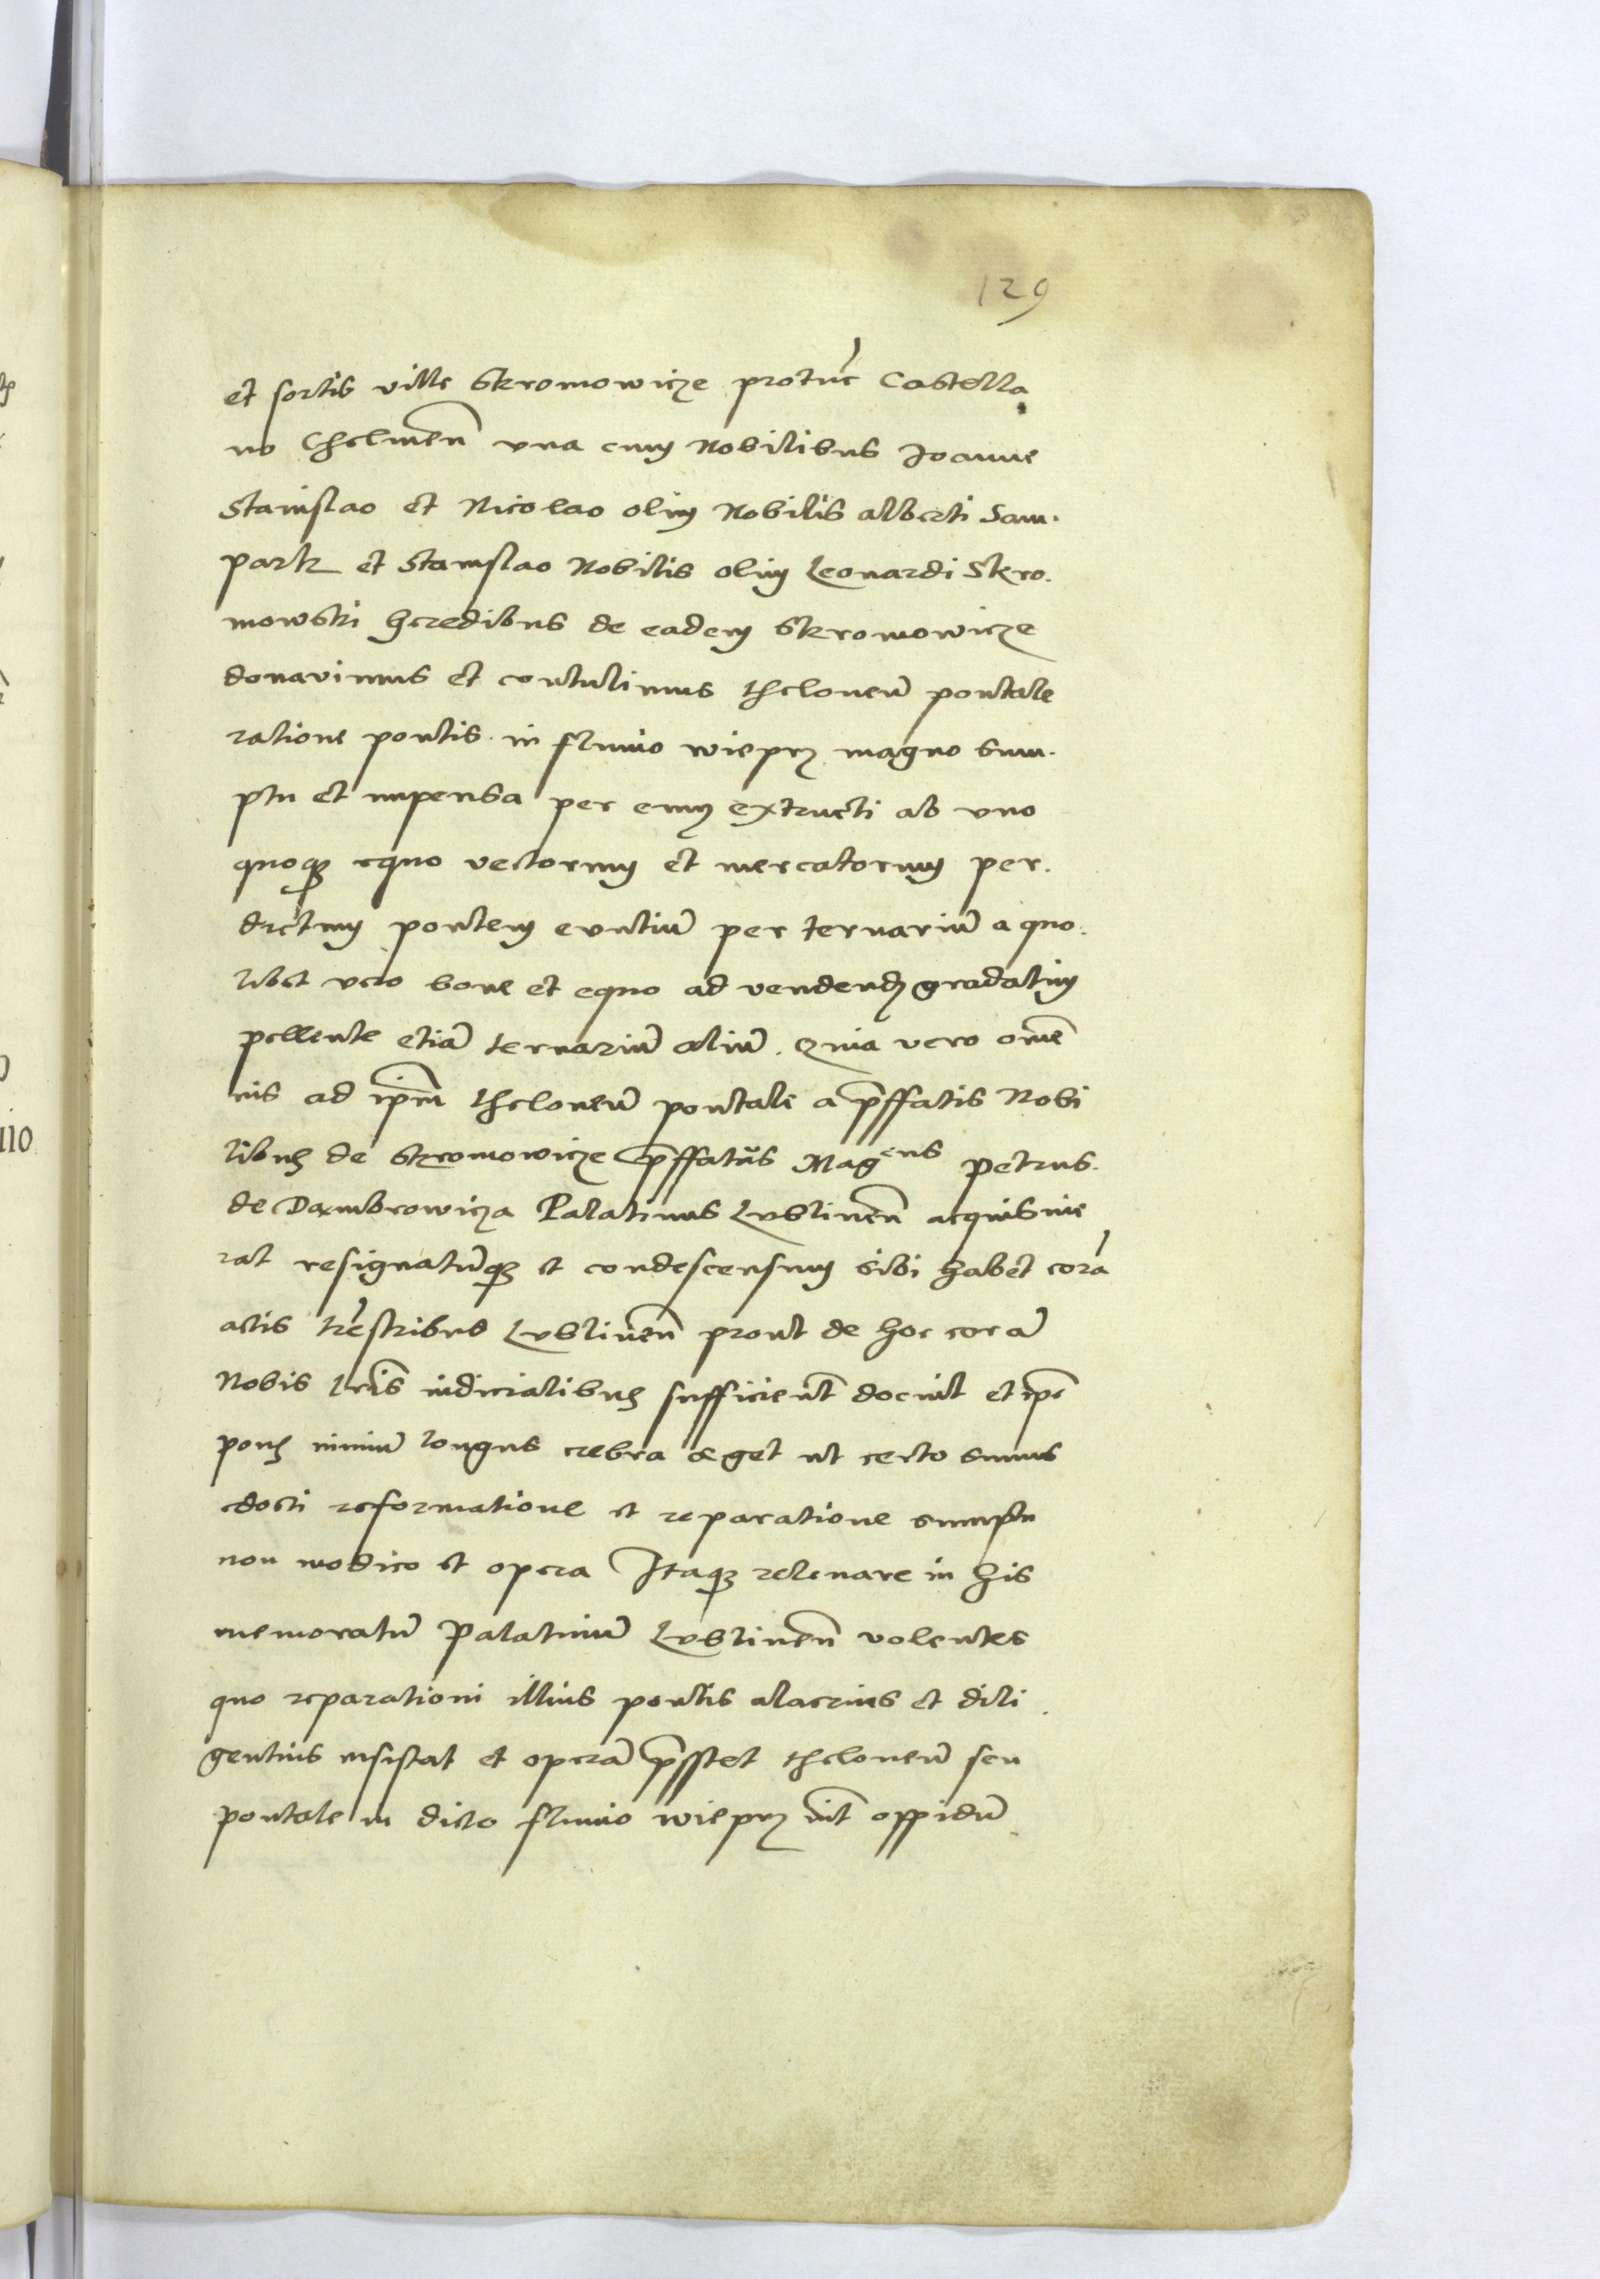 129
et sortis ville Skromowicze protūc Castella
no Chelmen̄ vna cum Nobilibus Joanne
Stanislao et Nicolao olim Nobilis alberti Sam.
park et Stanislao Nobilis olim Leonardi Skro.
mowski heredibus de eadem Skromowicze
donavimus et contulimus theloneū pontale
ratione pontis in fluuio wieprz magno sum.
ptu et impensa per eum extructi ab vno
quoqꝫ equo vectorum et mercatorum per.
dictum pontem euntiū per ternariū a quo.
libet vero boue et equo ad vendendū gradatim
pellente etiā ternariū aliū. Quia vero om̄e
ius ad ip̄m theloneū pontale a p̄ffatis Nobi
libus de Skromowicze p̄ffatus Mag^cus Petrus.
de Dambrowicza Palatinus Lublinen̄ acquisiue
rat resignatūqꝫ et condescensum sibi habet corā
actis tr̄estribus Lublinen̄ prout de hoc corā
Nobis lr̄is iudicialibus sufficient̄ docuit et ip̄e
pons nimiū longus crebra eget ut certo sumus
edocti reformatione et reparatione sumptu
non modico et opera Itaqꝫ releuare in his
memoratū Palatinū Lublinen̄ volentes
quo reparationi illius pontis alacrius et dili
gentius insistat et operā p̄sstet theloneū seu
pontale in dicto fluuio wieprz int̄ oppidū